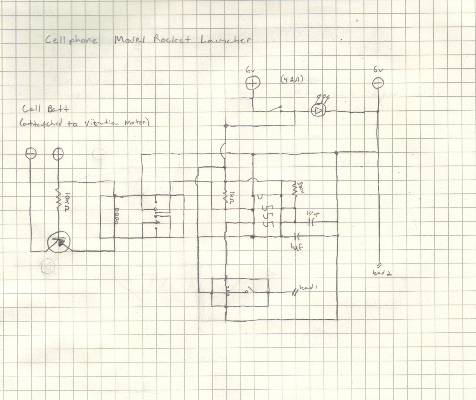 Cellphone Model Rocket Launcher
6v
(4AA)
6v
Cell Batt
(attatched to Vibration Motor)
100Ω
1kΩ
555
10uF
1uF
lead 1
lead 2